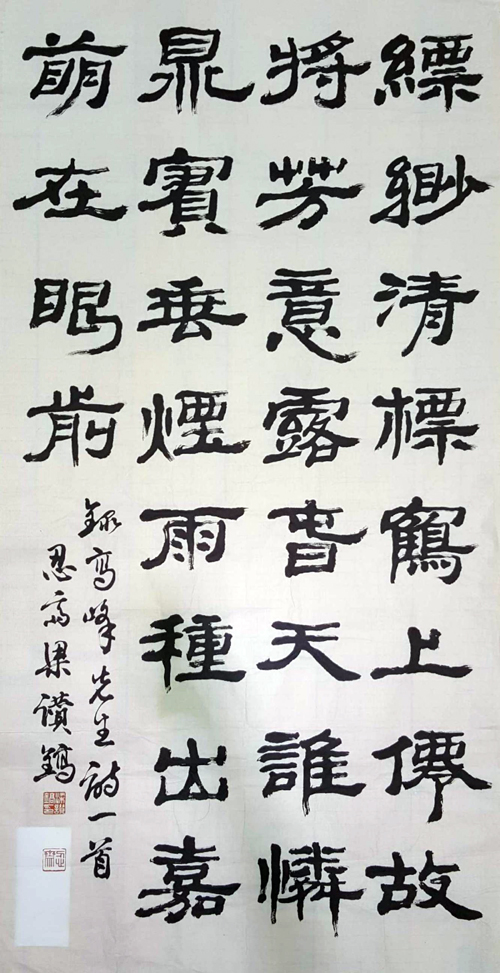 縹緲清標鶴上僊故
將芳意露旾天誰憐
鼎實垂煙雨種出嘉
萌在眼前
錄高峰先生詩一首
忍齋梁讚